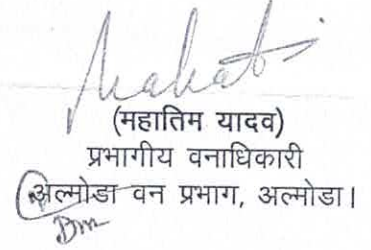 (महातिम यादव)
प्रभागीय वनाधिकारी
अल्मोडा वन प्रभाग, अल्मोडा।